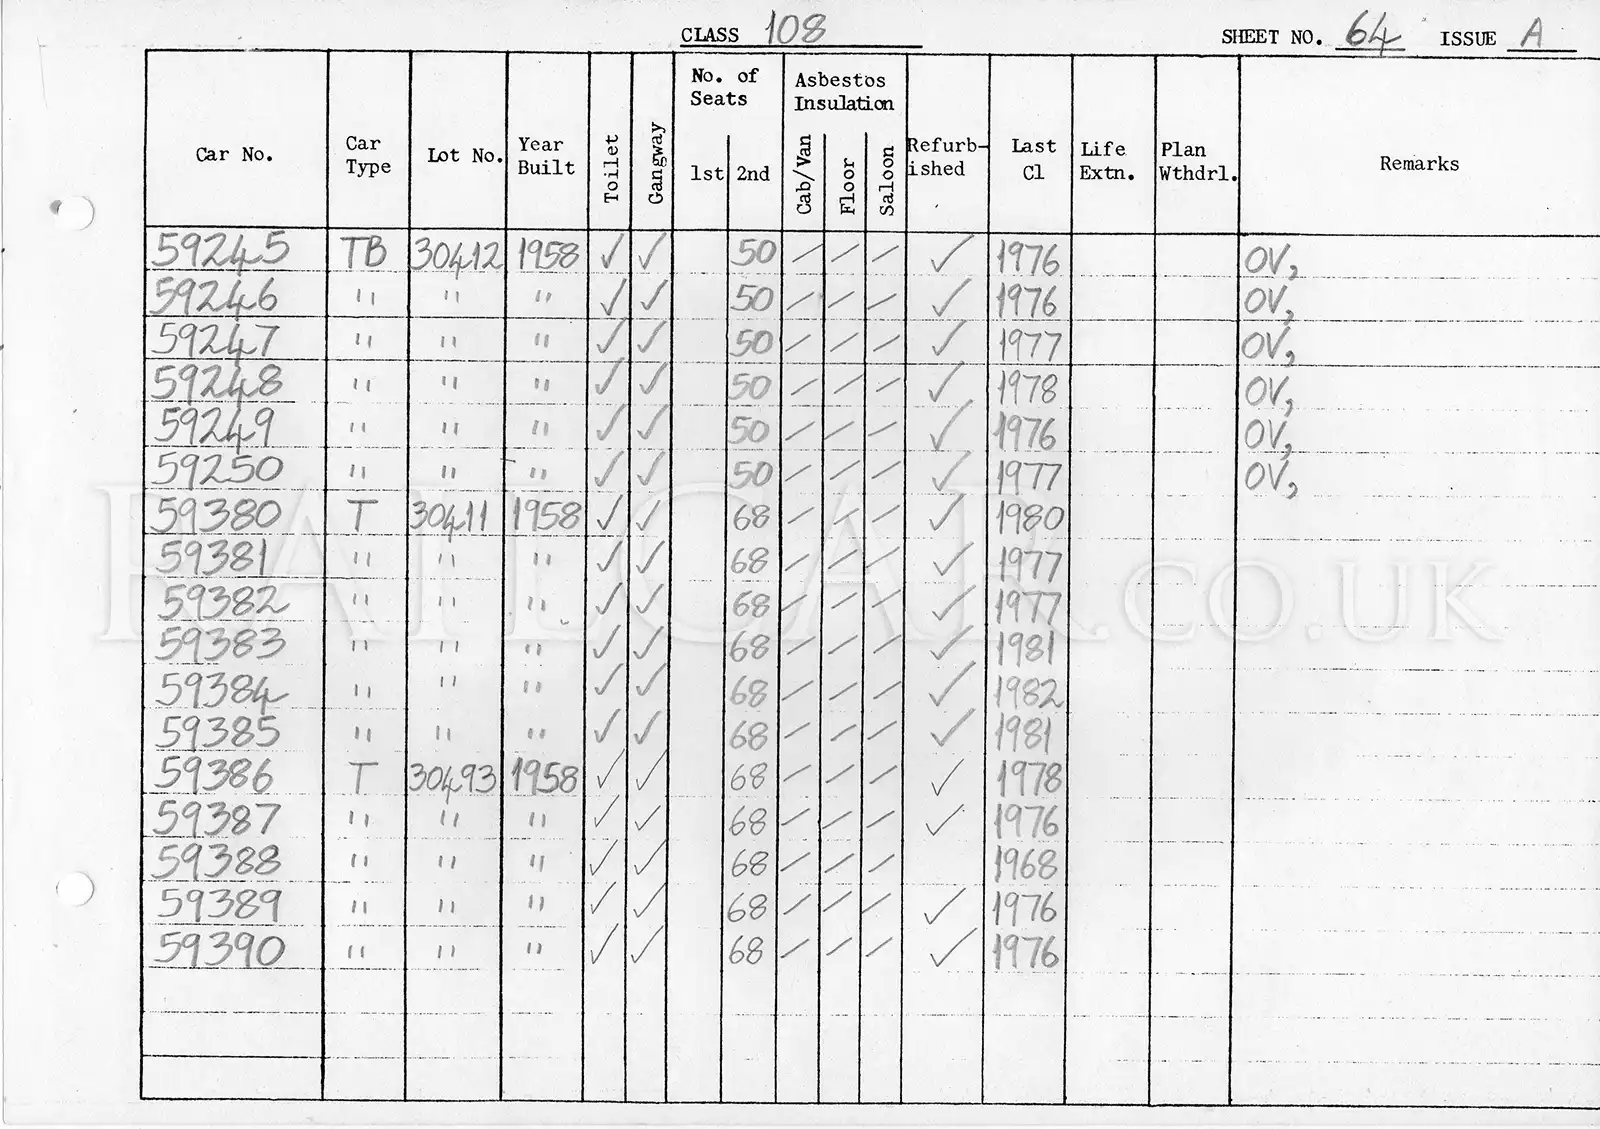 CLASS 108 SHEET NO. 64 ISSUE A
Car No. Car Type Lot No. Year Built Toilet Gangway No. of Seats 1st 2nd Asbestos Insulation Cab/Van Floor Saloon Refurb-ished Last Cl Life Extn. Plan Wthdrl. Remarks
59245 TB 30412 1958 ✓ ✓ 50 / / / ✓ 1976 OV,
59246 " " " ✓ ✓ 50 / / / ✓ 1976 OV,
59247 " " " ✓ ✓ 50 / / / ✓ 1977 OV,
59248 " " " ✓ ✓ 50 / / / ✓ 1978 OV,
59249 " " " ✓ ✓ 50 / / / ✓ 1976 OV,
59250 " " " ✓ ✓ 50 / / / ✓ 1977 OV,
59380 T 30411 1958 ✓ ✓ 68 / / / ✓ 1980
59381 " " " ✓ ✓ 68 / / / ✓ 1977
59382 " " " ✓ ✓ 68 / / / ✓ 1977
59383 " " " ✓ ✓ 68 / / / ✓ 1981
59384 " " " ✓ ✓ 68 / / / ✓ 1982
59385 " " " ✓ ✓ 68 / / / ✓ 1981
59386 T 30493 1958 ✓ ✓ 68 / / / ✓ 1978
59387 " " " ✓ ✓ 68 / / / ✓ 1976
59388 " " " ✓ ✓ 68 / / / 1968
59389 " " " ✓ ✓ 68 / / / ✓ 1976
59390 " " " ✓ ✓ 68 / / / ✓ 1976
RAILCAR.CO.UK